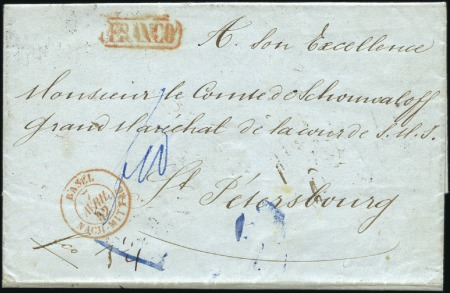 FRANCO
A. son Excellence
Monsieur le Comte de Schouwaloff
Grand Maréchal de la cour de S.M.I.
St Pétersbourg
BASEL
AVRIL
fco